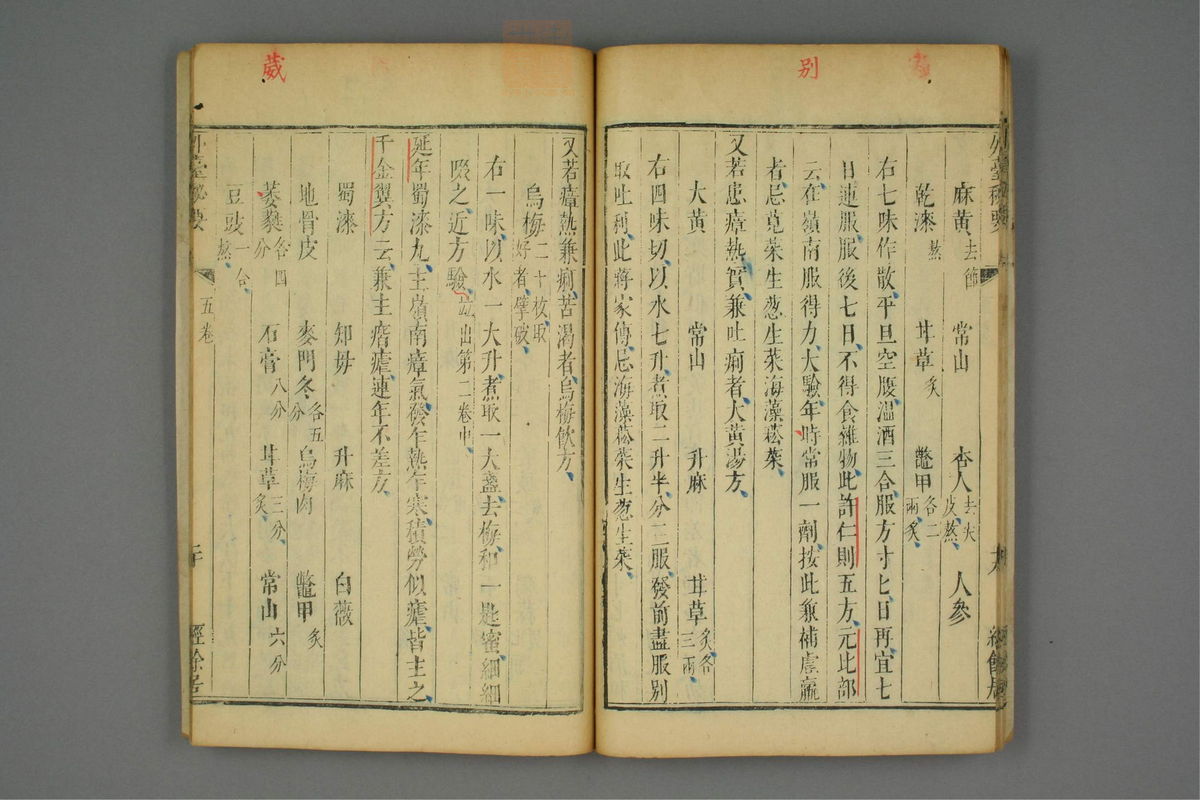 別
麻黃去節 常山 杏人去尖皮熬 人參
乾漆熬 甘草炙 鼈甲各二兩炙
右七味作散平旦空腹温酒三合服方寸匕日再宜七
日連服服後七日不得食雜物此許仁則五方元比部
云在嶺南服得力大驗年時常服一劑按此兼補虛羸
者忌莧菜生葱生菜海藻菘菜
又若患瘴熱實兼吐痢者大黃湯方
大黃 常山 升麻 甘草炙各三兩
右四味切以水七升煮取二升半分三服發前盡服別
取吐利此蔣家傳忌海藻菘菜生葱生菜
葳
又若瘴熱兼痢苦渴者烏梅飲方
烏梅二十枚取好者擘破
右一味以水一大升煮取一大盞去梅和一匙蜜細細
啜之近方驗竝出第二卷中
延年蜀漆丸主嶺南瘴氣發乍熱乍寒積勞似瘧皆主之
千金翼方云兼主痎瘧連年不差方
蜀漆 知母 升麻 白薇
地骨皮 麥門冬各五分 烏梅肉 鼈甲炙
萎蕤各四分 石膏八分 甘草三分炙 常山六分
豆豉一合熬
外臺秘要 五卷 二十 經餘居